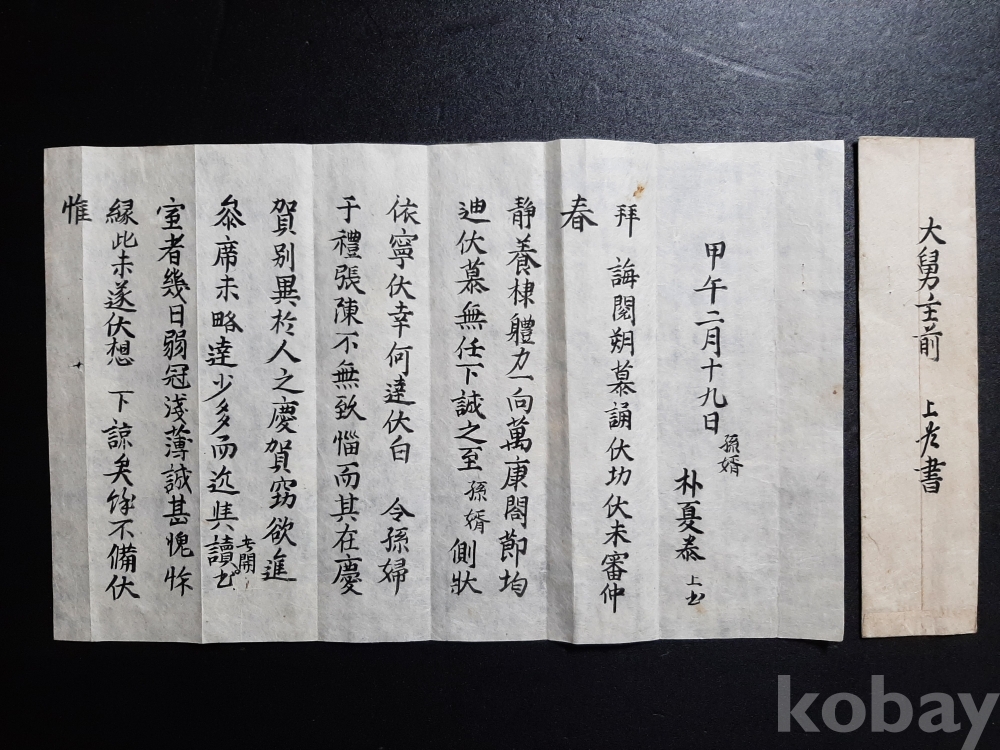 大舅主前 上書
甲午二月十九日
孫婿
朴夏泰 上書
拜 誨閱朔慕誦伏切伏未審仲
春
靜養棣體力一向萬康閤節均
迪伏慕無任下誠之至 孫婿 側狀
依寧伏幸何達伏白 令孫婦
于禮張陳不無致惱而其在慶
賀別異於人之慶賀窃欲進
叅席未略達少多而近與讀書
開
室者幾日弱冠淺薄誠甚愧怍
緣此未遂伏想 下諒矣餘不備伏
惟
kobay